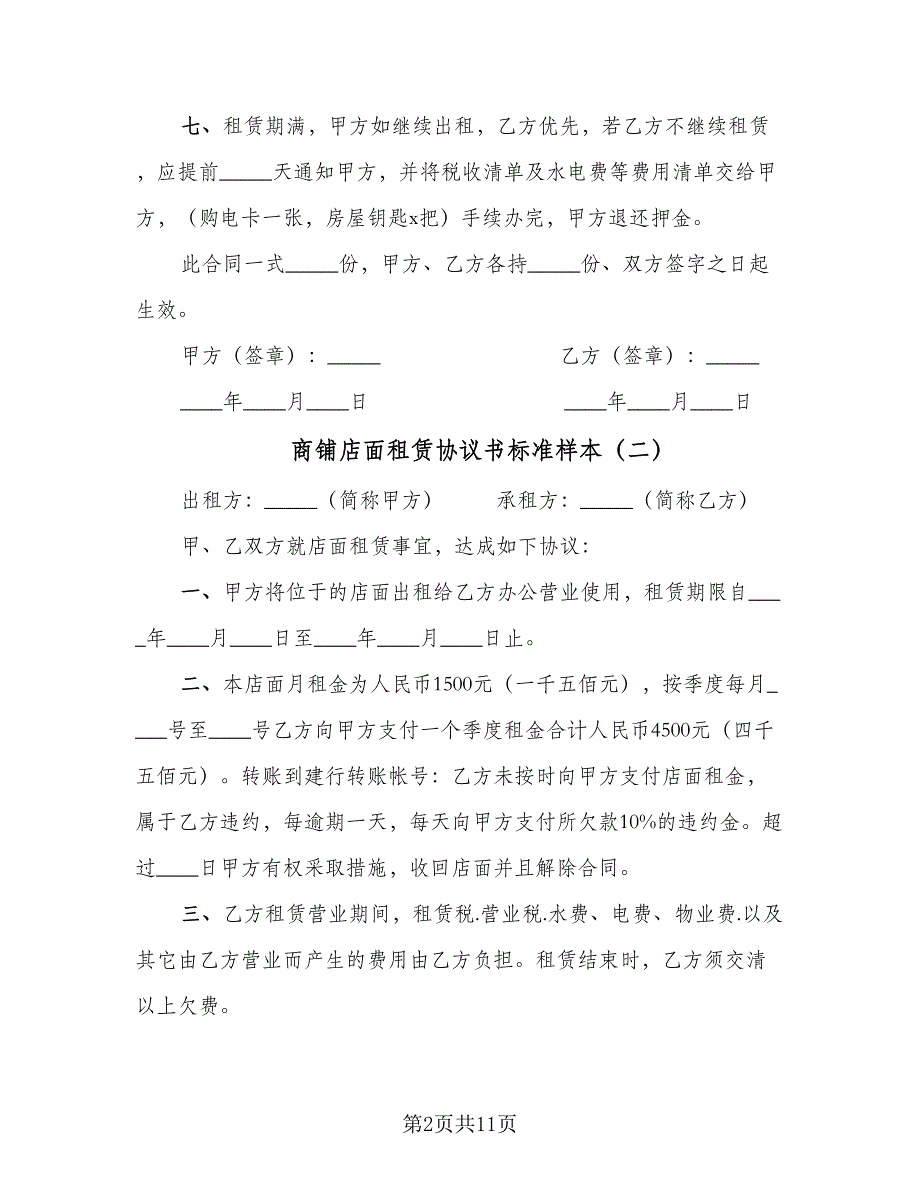 七、租赁期满，甲方如继续出租，乙方优先，若乙方不继续租赁
，应提前_____天通知甲方，并将税收清单及水电费等费用清单交给甲
方，（购电卡一张，房屋钥匙x把）手续办完，甲方退还押金。
此合同一式_____份，甲方、乙方各持_____份、双方签字之日起
生效。
甲方（签章）：_____ 乙方（签章）：_____
____年____月____日 ____年____月____日
商铺店面租赁协议书标准样本（二）
出租方：_____（简称甲方） 承租方：_____（简称乙方）
甲、乙双方就店面租赁事宜，达成如下协议：
一、甲方将位于的店面出租给乙方办公营业使用，租赁期限自___
_年____月____日至____年____月____日止。
二、本店面月租金为人民币1500元（一千五佰元），按季度每月_
___号至____号乙方向甲方支付一个季度租金合计人民币4500元（四千
五佰元）。转账到建行转账帐号：乙方未按时向甲方支付店面租金，
属于乙方违约，每逾期一天，每天向甲方支付所欠款10%的违约金。超
过____日甲方有权采取措施，收回店面并且解除合同。
三、乙方租赁营业期间，租赁税.营业税.水费、电费、物业费.以及
其它由乙方营业而产生的费用由乙方负担。租赁结束时，乙方须交清
以上欠费。
第2页共11页